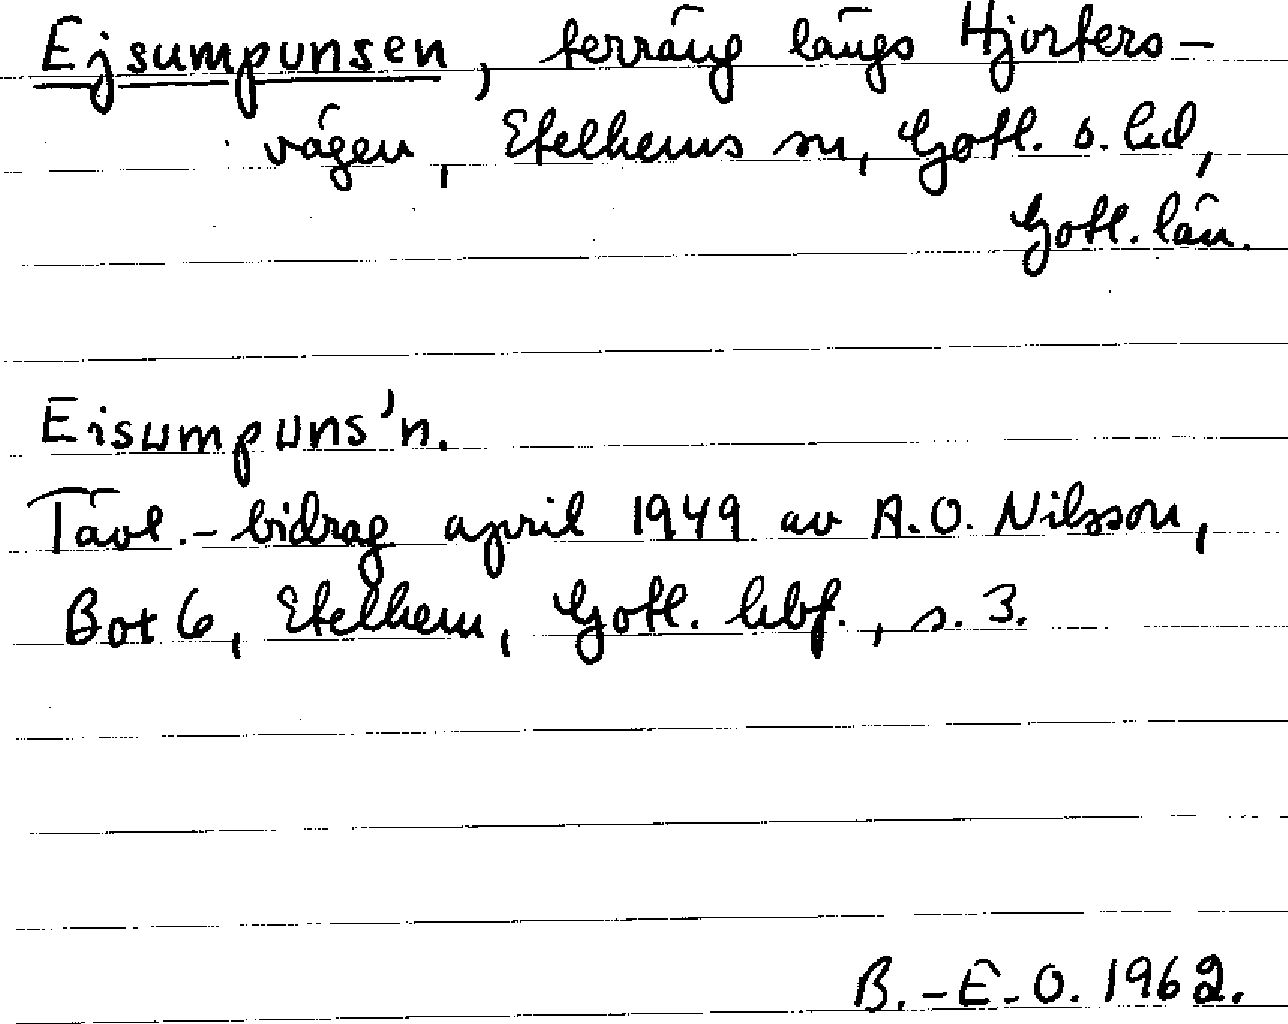 Ejsumpunsen, terräng längs Hjorters-
vägen, Etelhems sn, Gotl. s. hd,
Gotl. län.
Eisumpuns'n.
Tävl.-bidrag april 1949 av A.O. Nilsson,
Bot 6, Etelhem, Gotl. hbf., s. 3.
B.-E.O. 1962.